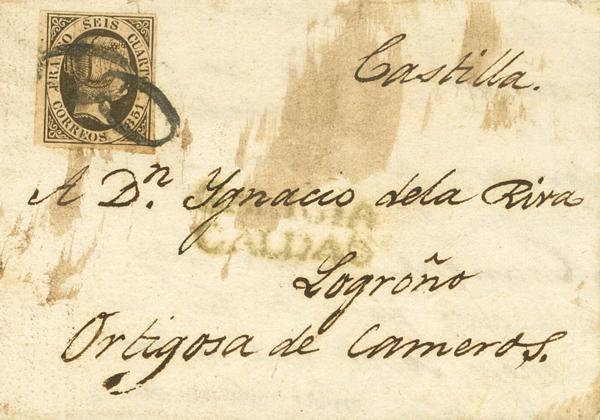 FRANCO SEIS CUARTOS
CORREOS 1851
Castilla.
A Dn. Ygnacio dela Riva
Logroño
Ortigosa de Cameros.